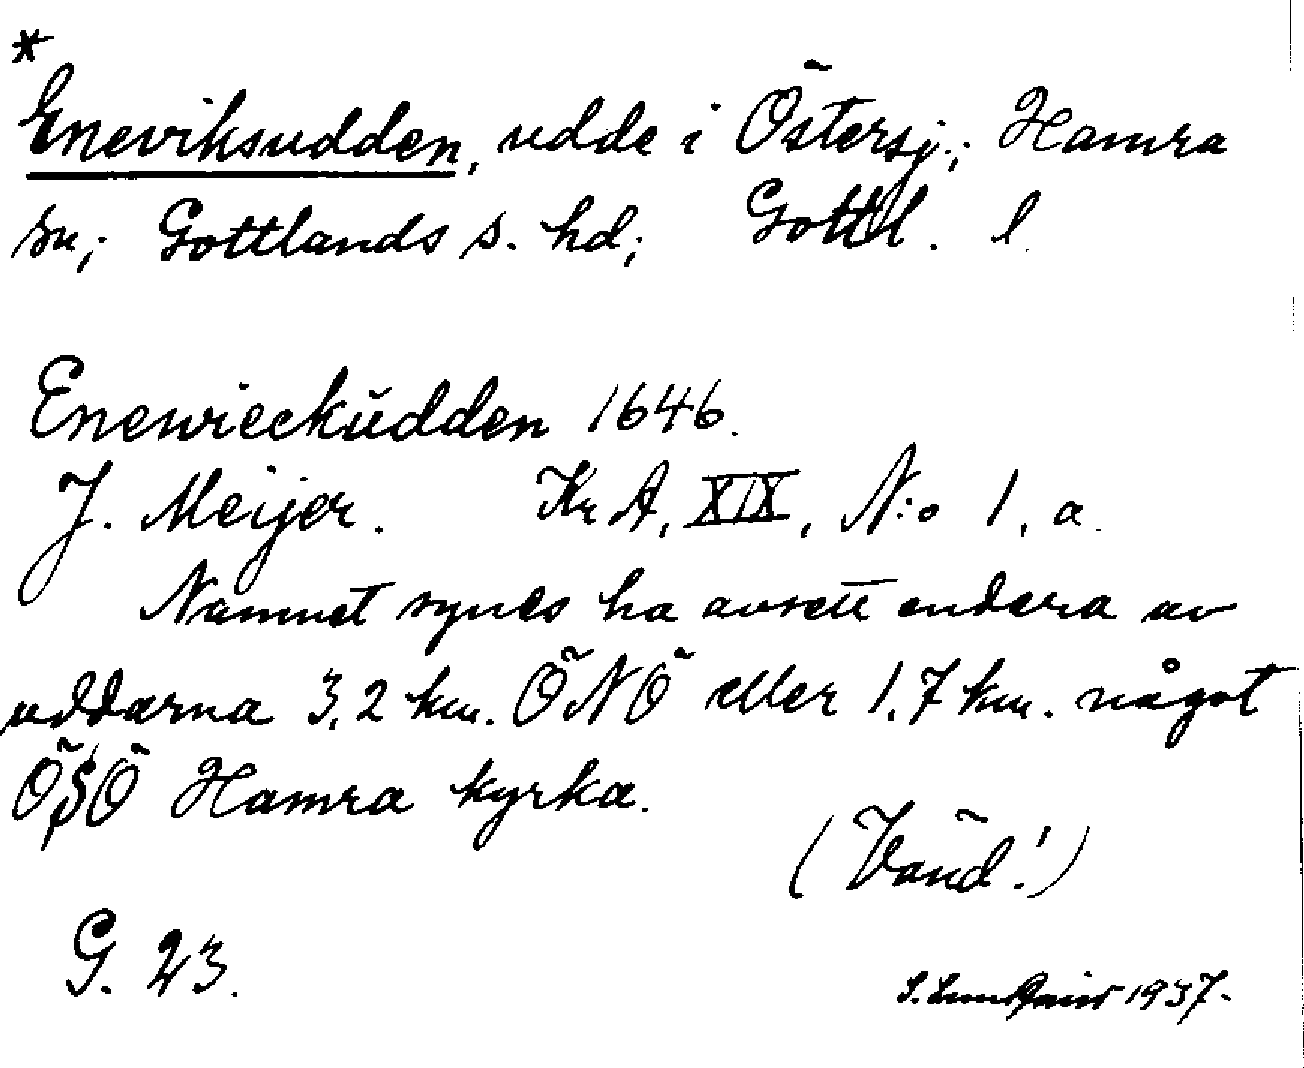 *
Eneviksudden, udde i Östersj.; Hamra
sn; Gottlands s. hd; Gottl. l.
Enewieckŭdden 1646.
J. Meijer. Kr A, XIX, N:o 1, a.
Namnet synes ha avsett endera av
uddarna 3,2 km. ÖNÖ eller 1,7 km. något
ÖSÖ Hamra kyrka.
(Vänd!)
G. 23.
1937.